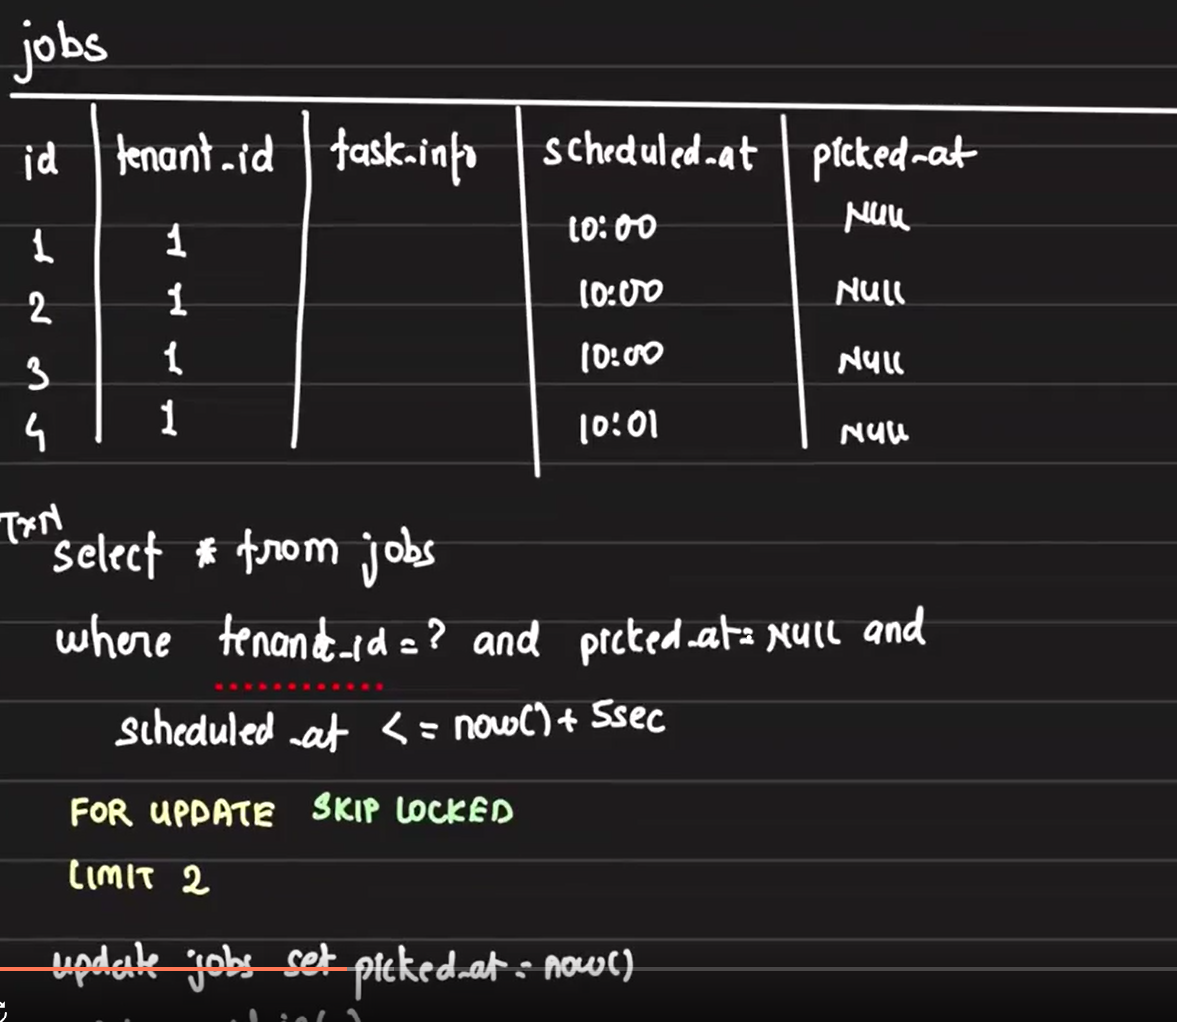 jobs
id tenant_id task_info scheduled_at picked_at
1 1 10:00 NULL
2 1 10:00 NULL
3 1 10:00 NULL
4 1 10:01 NULL
TXN
select * from jobs
where tenant_id = ? and picked_at = NULL and
scheduled_at <= now() + 5sec
FOR UPDATE SKIP LOCKED
LIMIT 2
update jobs set picked_at = now()